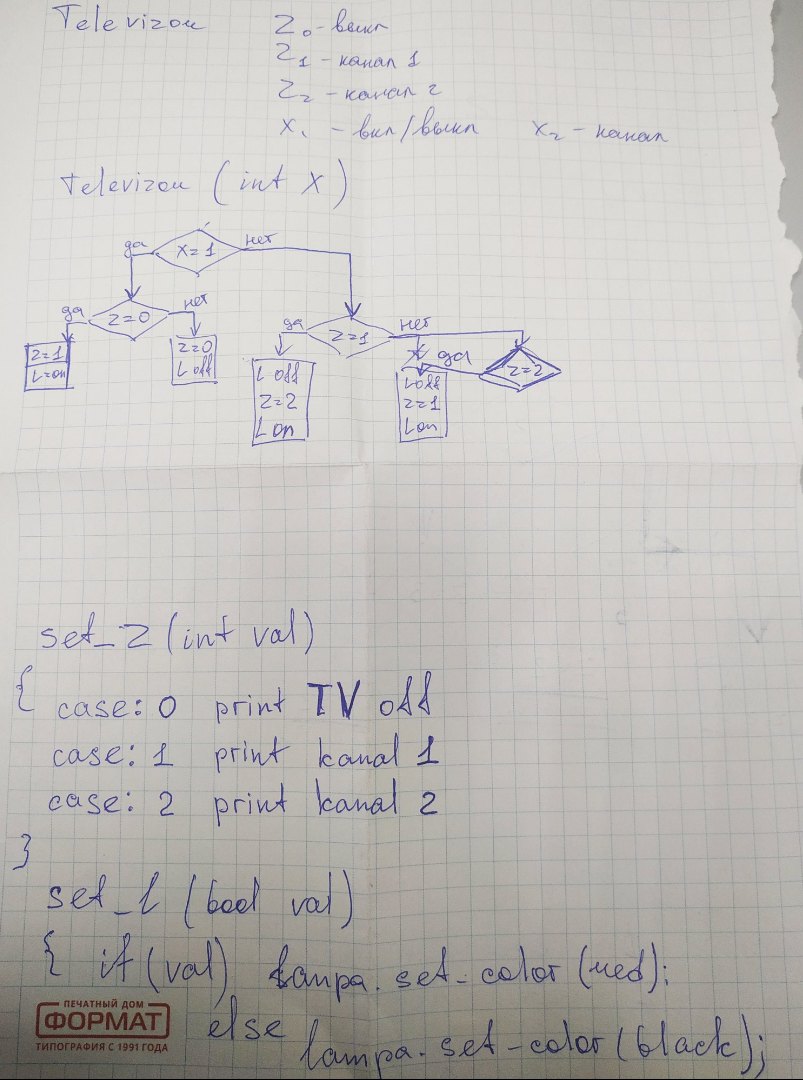 Televizor
Z0 - выкл
Z1 - канал 1
Z2 - канал 2
X1 - вкл/выкл X2 - канал
Televizor (int X)
да X=1 нет
да Z=0 нет да Z=1 нет
Z=1 Z=0 L off да Z=2
L=on L off Z=2 L off
L on Z=1
L on
set_Z (int val)
{ case: 0 print TV off
case: 1 print kanal 1
case: 2 print kanal 2
}
set_l (bool val)
{ if (val) lampa. set-color (red);
else
lampa. set-color (black);
ПЕЧАТНЫЙ ДОМ
ФОРМАТ
ТИПОГРАФИЯ С 1991 ГОДА